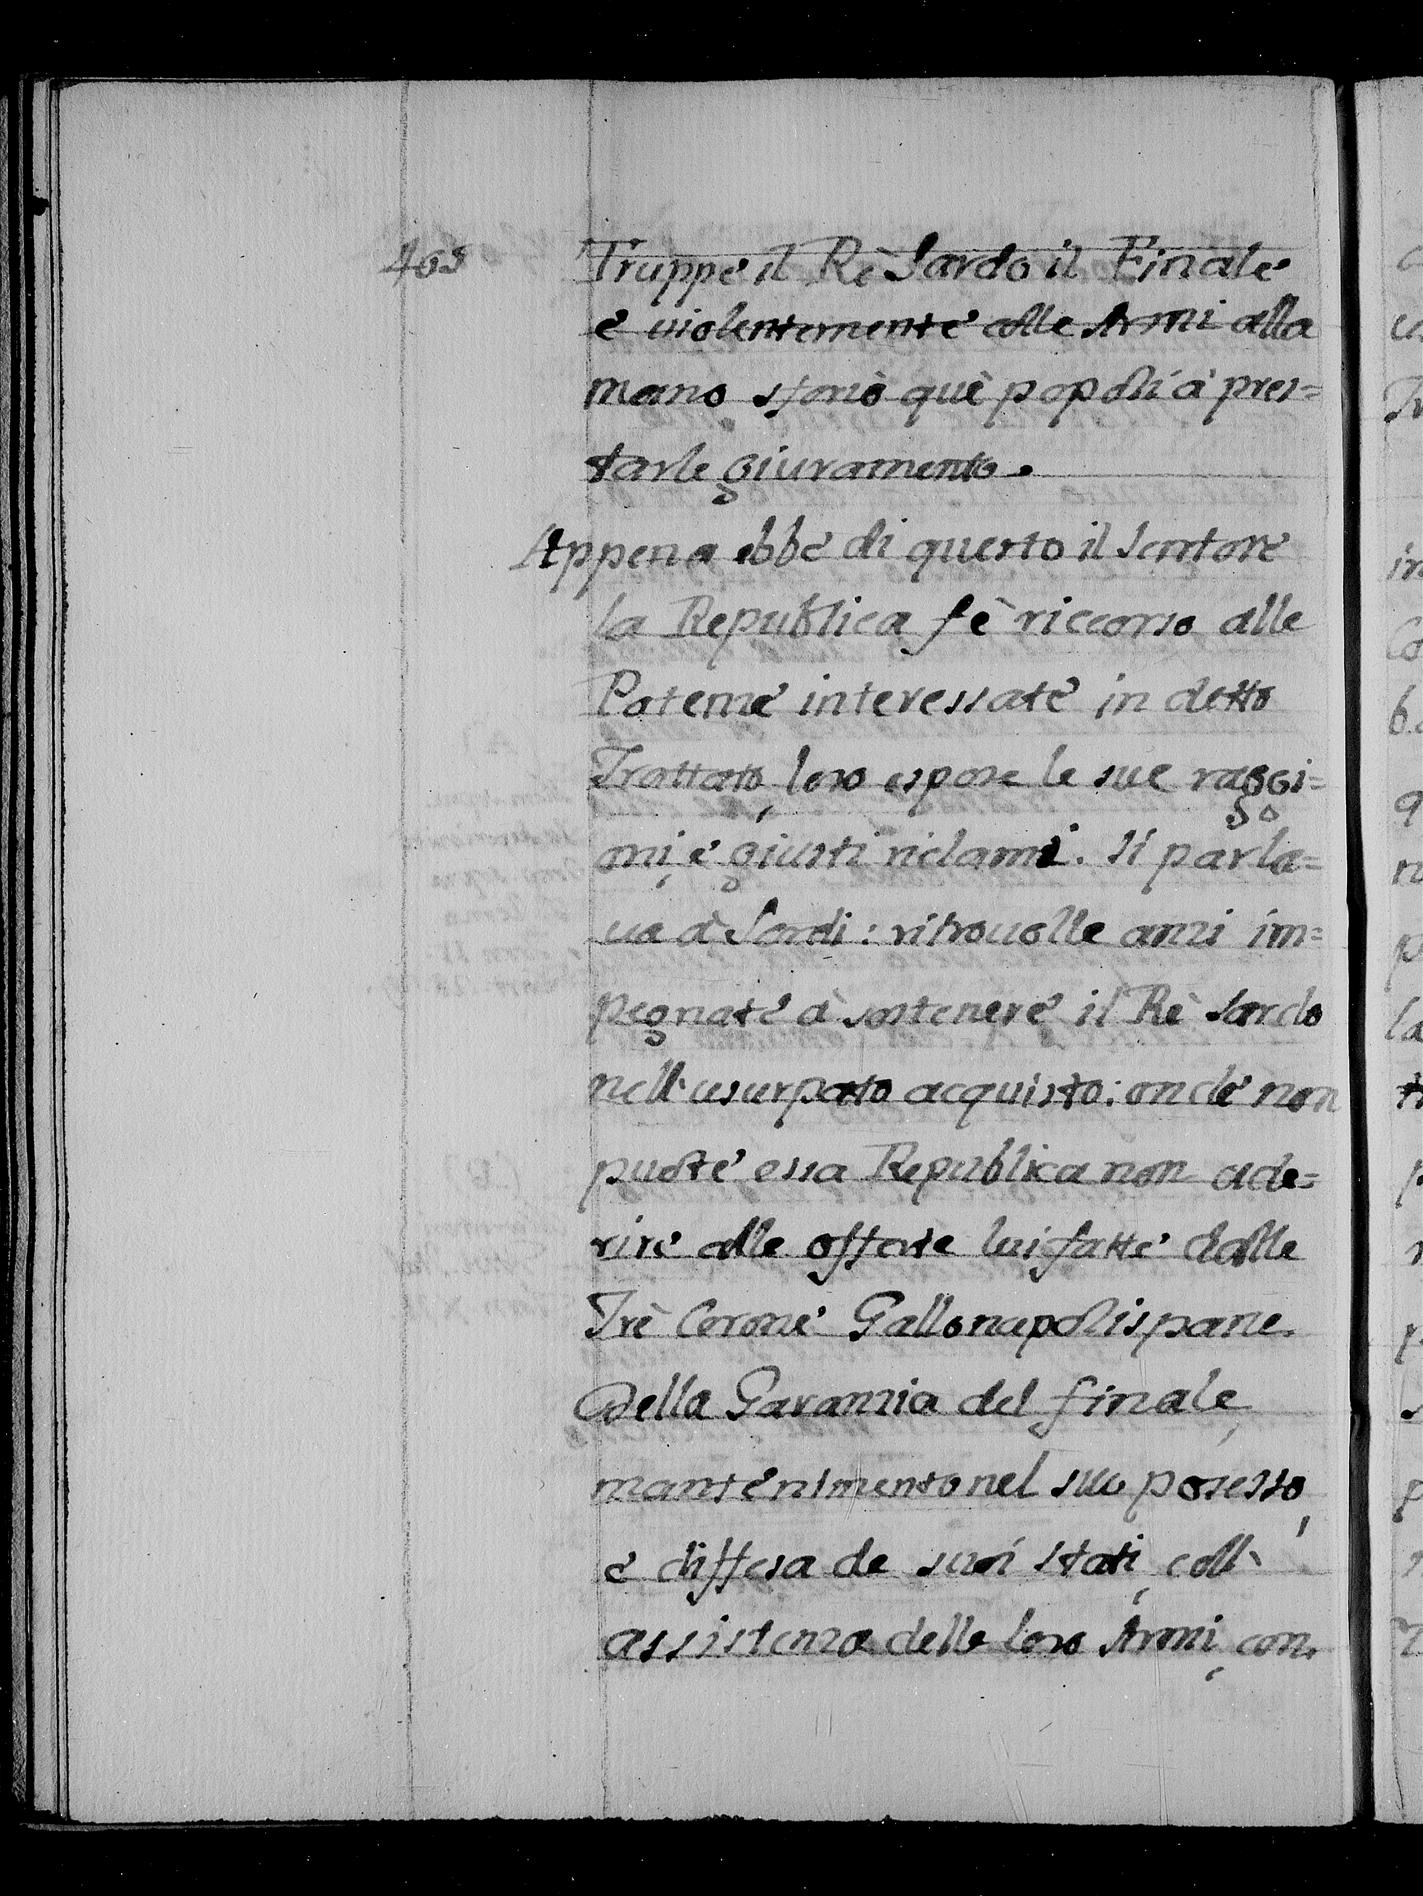 405
Truppe il Rè Sardo il Finale
e violentemente colle Armi alla
mano sforiò què popoli à pres=
tarle giuramento.
Appena ebbe di questo il sentore
la Republica fè riccorso alle
Potenze interessate in detto
Trattato, loro espose le sue raggi=
oni, e giusti riclami. Si parla=
va à Sordi: ritrovolle anzi im=
pegnate à sostenere il Rè Sardo
nell'usurpato acquisto: onde non
puote essa Republica non ade=
rire alle offerte lui fatte dalle
Trè Corone Gallonapolispane
della Garanzia del finale,
mantenimento nel suo posesso,
e diffesa de suoi stati, coll'
assistenza delle loro Armi, con